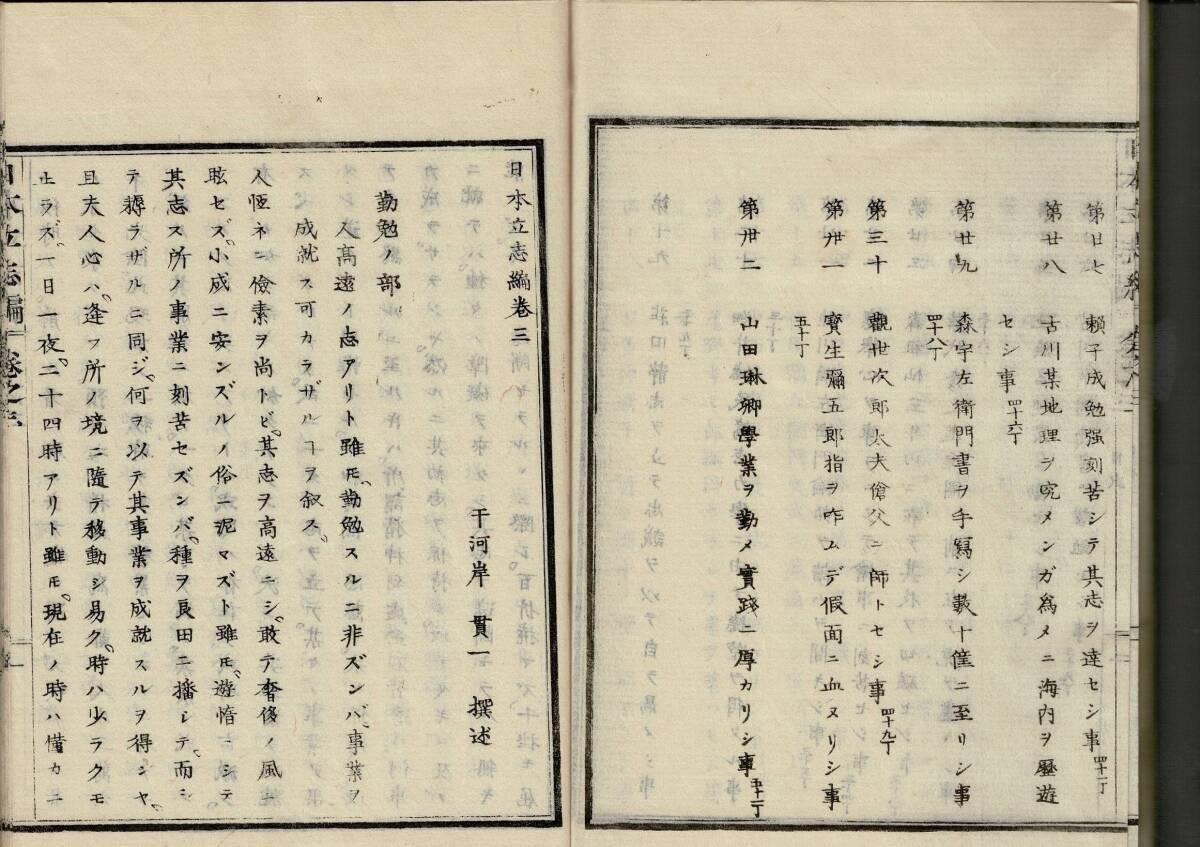 第廿七 賴子成勉强刻苦シテ其志ヲ達セシ事 四十一丁
第廿八 古川某地理ヲ究メンガ爲メニ海内ヲ歷遊
セシ事 四十六丁
第廿九 森守左衛門書ヲ手寫シ數十僅ニ至リシ事
四十八丁
第三十 觀世次郎太夫傖父ニ師トセシ事 四十九丁
第卅一 寶生彌五郎指ヲ咋ムデ假面ニ血ヌリシ事
五十丁
第卅二 山田琳卿學業ヲ勤メ實踐ニ厚カリシ事 五十一丁
日本立志編卷三
干河岸 貫一 撰述
勤勉ノ部
人高遠ノ志アリト雖モ、勤勉スルニ非ズンバ、事業ヲ
成就ス可カラザルコヲ叙ス、
人恆ネニ儉素ヲ尚トビ、其志ヲ高遠ニシ、敢テ奢侈ノ風ニ
眩セズ、小成ニ安ンズルノ俗ニ泥マズト雖モ、遊惰ニシテ
其志ス所ノ事業ニ刻苦セズンバ、種ヲ良田ニ播シテ、而シ
テ耨ラザルニ同ジ、何ヲ以テ其事業ヲ成就スルヲ得ンヤ、
且夫人心ハ、逢フ所ノ境ニ隨テ移動シ易ク、時ハ少ラクモ
止ラズ、一日一夜、二十四時アリト雖モ、現在ノ時ハ僅カニ
日本立志編 卷之三